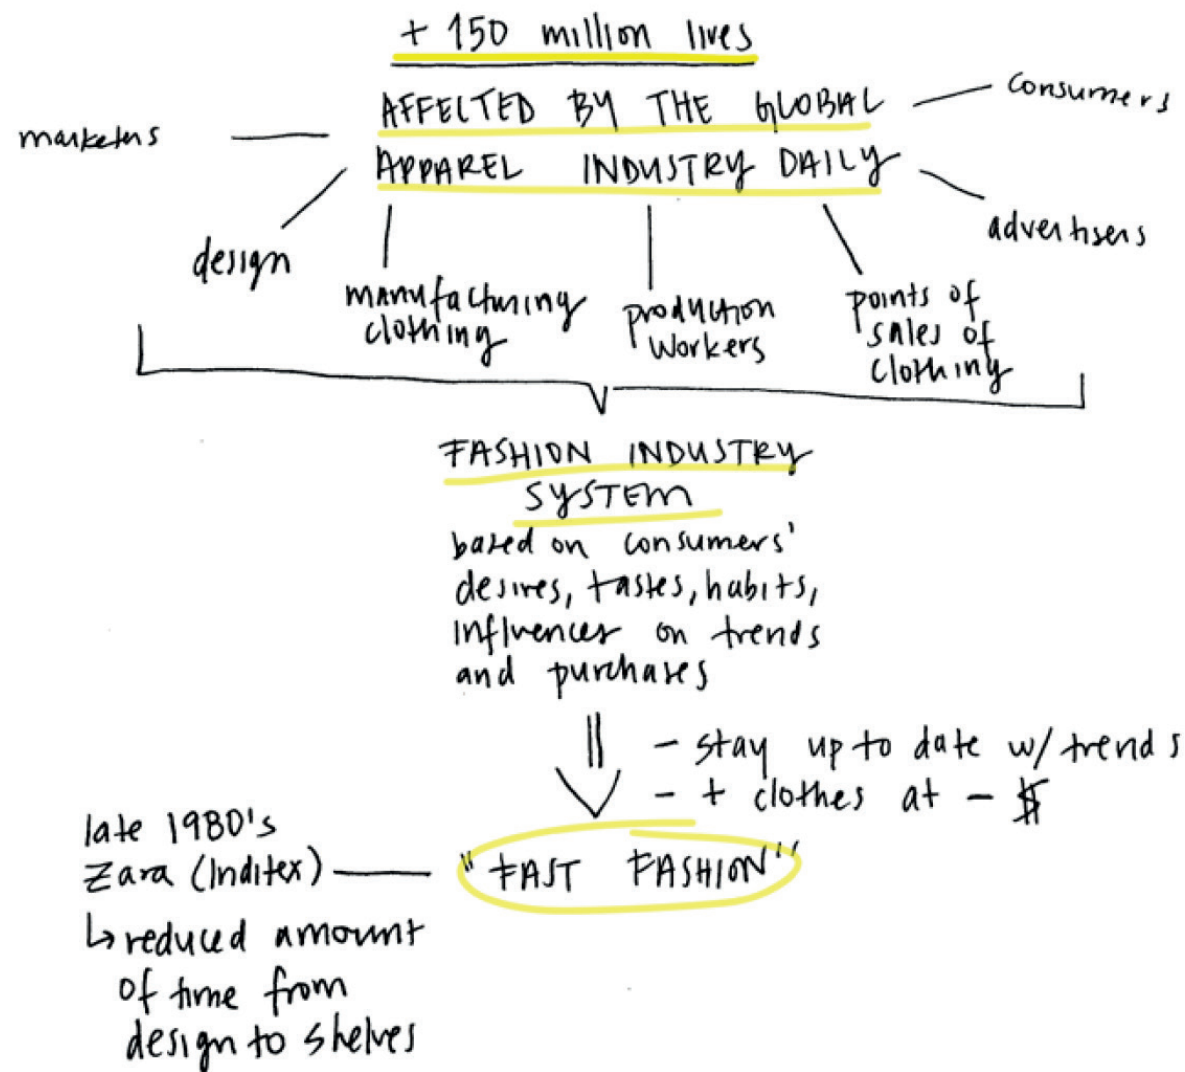 + 150 million lives
AFFECTED BY THE GLOBAL
APPAREL INDUSTRY DAILY
consumers
marketers
design
manufacturing
clothing
production
workers
points of
sales of
clothing
advertisers
FASHION INDUSTRY
SYSTEM
based on consumers'
desires, tastes, habits,
influences on trends
and purchases
- stay up to date w/ trends
- + clothes at - $
late 1980's
Zara (Inditex)
"FAST FASHION"
↳ reduced amount
of time from
design to shelves